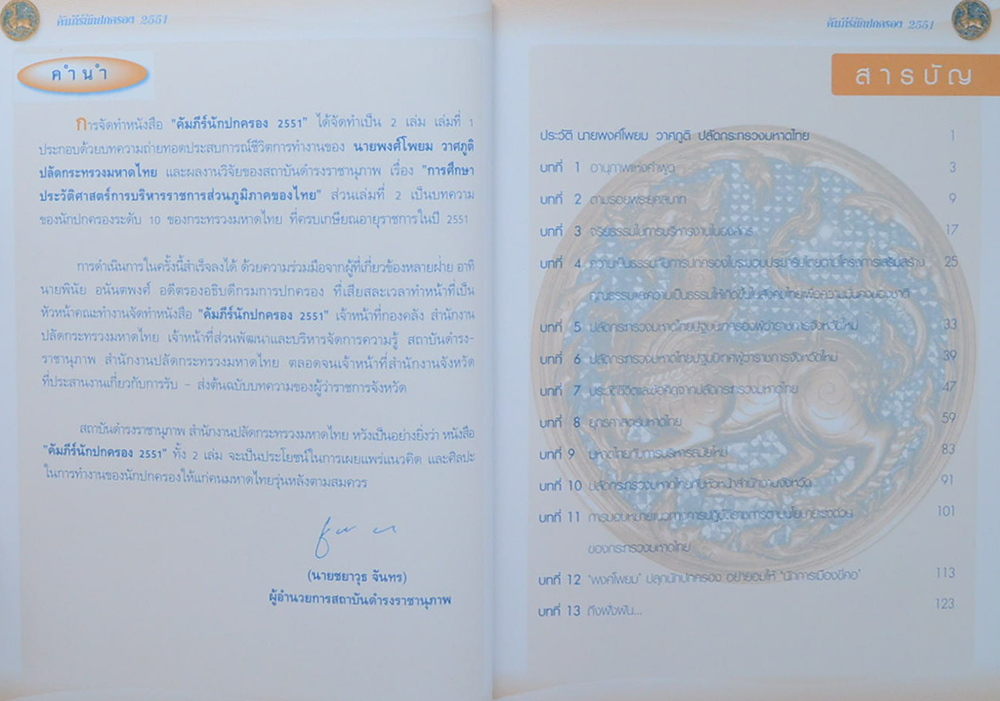 คัมภีร์นักปกครอง 2551
คำนำ
การจัดทำหนังสือ "คัมภีร์นักปกครอง 2551" ได้จัดทำเป็น 2 เล่ม เล่มที่ 1
ประกอบด้วยบทความถ่ายทอดประสบการณ์ชีวิตการทำงานของ นายพงศ์โพยม วาศภูติ
ปลัดกระทรวงมหาดไทย และผลงานวิจัยของสถาบันดำรงราชานุภาพ เรื่อง "การศึกษา
ประวัติศาสตร์การบริหารราชการส่วนภูมิภาคของไทย" ส่วนเล่มที่ 2 เป็นบทความ
ของนักปกครองระดับ 10 ของกระทรวงมหาดไทย ที่ครบเกษียณอายุราชการในปี 2551
การดำเนินการในครั้งนี้สำเร็จลงได้ ด้วยความร่วมมือจากผู้ที่เกี่ยวข้องหลายฝ่าย อาทิ
นายพินัย อนันตพงศ์ อดีตรองอธิบดีกรมการปกครอง ที่เสียสละเวลาทำหน้าที่เป็น
หัวหน้าคณะทำงานจัดทำหนังสือ "คัมภีร์นักปกครอง 2551" เจ้าหน้าที่กองคลัง สำนักงาน
ปลัดกระทรวงมหาดไทย เจ้าหน้าที่ส่วนพัฒนาและบริหารจัดการความรู้ สถาบันดำรง-
ราชานุภาพ สำนักงานปลัดกระทรวงมหาดไทย ตลอดจนเจ้าหน้าที่สำนักงานจังหวัด
ที่ประสานงานเกี่ยวกับการรับ - ส่งต้นฉบับบทความของผู้ว่าราชการจังหวัด
สถาบันดำรงราชานุภาพ สำนักงานปลัดกระทรวงมหาดไทย หวังเป็นอย่างยิ่งว่า หนังสือ
"คัมภีร์นักปกครอง 2551" ทั้ง 2 เล่ม จะเป็นประโยชน์ในการเผยแพร่แนวคิด และศิลปะ
ในการทำงานของนักปกครองให้แก่คนมหาดไทยรุ่นหลังตามสมควร
(นายชยาวุธ จันทร)
ผู้อำนวยการสถาบันดำรงราชานุภาพ
คัมภีร์นักปกครอง 2551
สารบัญ
ประวัติ นายพงศ์โพยม วาศภูติ ปลัดกระทรวงมหาดไทย 1
บทที่ 1 อานุภาพแห่งคำพูด 3
บทที่ 2 ตามรอยพระยุคลบาท 9
บทที่ 3 จริยธรรมในการบริหารงานในองค์กร 17
บทที่ 4 ความเป็นธรรมกับการปกครองในระบอบประชาธิปไตยตามโครงการเสริมสร้าง 25
คุณธรรมและความเป็นธรรมให้เกิดขึ้นในสังคมไทยเพื่อความมั่นคงของชาติ
บทที่ 5 ปลัดกระทรวงมหาดไทยปฐมนิเทศรองผู้ว่าราชการจังหวัดใหม่ 33
บทที่ 6 ปลัดกระทรวงมหาดไทยปฐมนิเทศผู้ว่าราชการจังหวัดใหม่ 39
บทที่ 7 ประวัติชีวิตและข้อคิดจากปลัดกระทรวงมหาดไทย 47
บทที่ 8 ยุทธศาสตร์มหาดไทย 59
บทที่ 9 มหาดไทยกับการบริหารสมัยใหม่ 83
บทที่ 10 ปลัดกระทรวงมหาดไทยกับหัวหน้าสำนักงานจังหวัด 91
บทที่ 11 การมอบหมายแนวทางการปฏิบัติราชการตามนโยบายเร่งด่วน 101
ของกระทรวงมหาดไทย
บทที่ 12 "พงศ์โพยม" ปลุกนักปกครอง อย่ายอมให้ "นักการเมืองขี่คอ" 113
บทที่ 13 ถึงฟังฝัน... 123